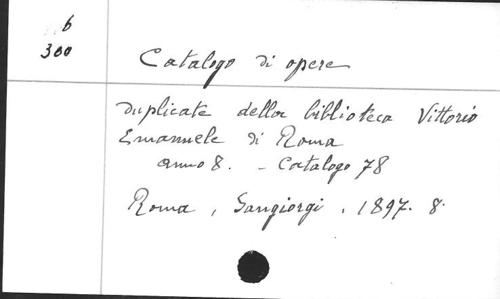 6
300
Catalogo di opere
duplicate della biblioteca Vittorio
Emanuele di Roma
anno 8. - Catalogo 78
Roma, Sangiorgi, 1897. 8.